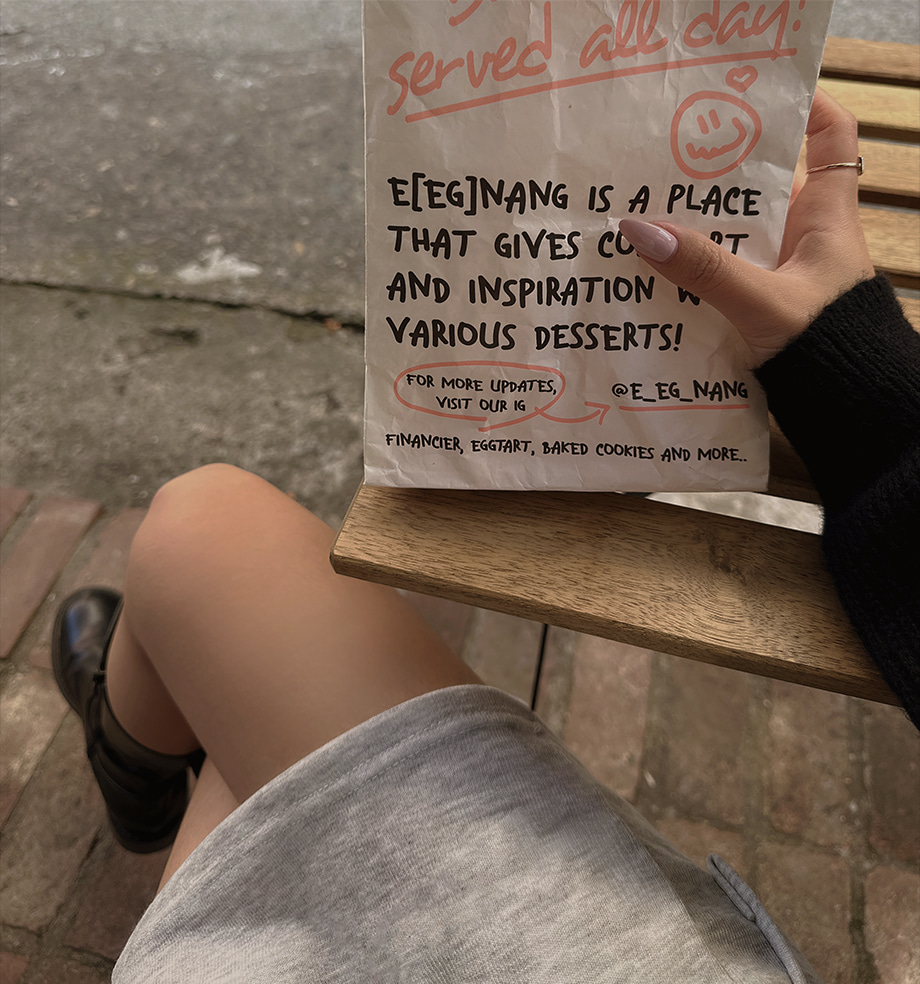 served all day!
E[EG]NANG IS A PLACE
THAT GIVES
AND INSPIRATION
VARIOUS DESSERTS!
FOR MORE UPDATES,
VISIT OUR IG
@E_EG_NANG
FINANCIER, EGGTART, BAKED COOKIES AND MORE..